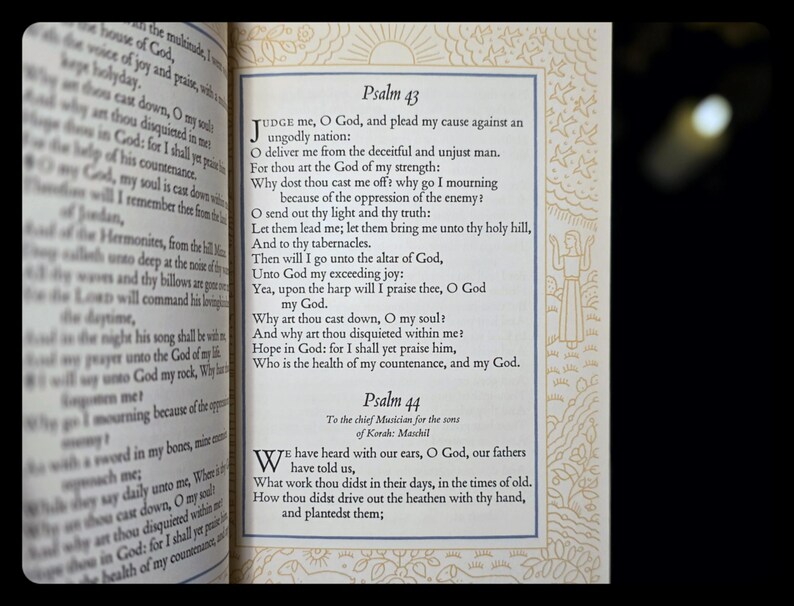 with the multitude, I went
the house of God,
the voice of joy and praise, with a
kept holyday.
Why art thou cast down, O my soul?
And why art thou disquieted in me?
Hope thou in God: for I shall yet praise him
For the help of his countenance.
O my God, my soul is cast down within
Therefore will I remember thee from the land
of Jordan,
And of the Hermonites, from the hill
Deep calleth unto deep at the noise of thy
All thy waves and thy billows are gone over
the LORD will command his
the daytime,
And in the night his song shall be with me,
And my prayer unto the God of my life.
I will say unto God my rock, Why hast
forgotten me?
Why go I mourning because of the oppression
enemy?
As with a sword in my bones, mine enemies
reproach me;
While they say daily unto me, Where is thy
Why art thou cast down, O my soul?
And why art thou disquieted within me?
Hope thou in God: for I shall yet praise him,
the health of my countenance, and my
Psalm 43
JUDGE me, O God, and plead my cause against an
ungodly nation:
O deliver me from the deceitful and unjust man.
For thou art the God of my strength:
Why dost thou cast me off? why go I mourning
because of the oppression of the enemy?
O send out thy light and thy truth:
Let them lead me; let them bring me unto thy holy hill,
And to thy tabernacles.
Then will I go unto the altar of God,
Unto God my exceeding joy:
Yea, upon the harp will I praise thee, O God
my God.
Why art thou cast down, O my soul?
And why art thou disquieted within me?
Hope in God: for I shall yet praise him,
Who is the health of my countenance, and my God.
Psalm 44
To the chief Musician for the sons
of Korah: Maschil
WE have heard with our ears, O God, our fathers
have told us,
What work thou didst in their days, in the times of old.
How thou didst drive out the heathen with thy hand,
and plantedst them;